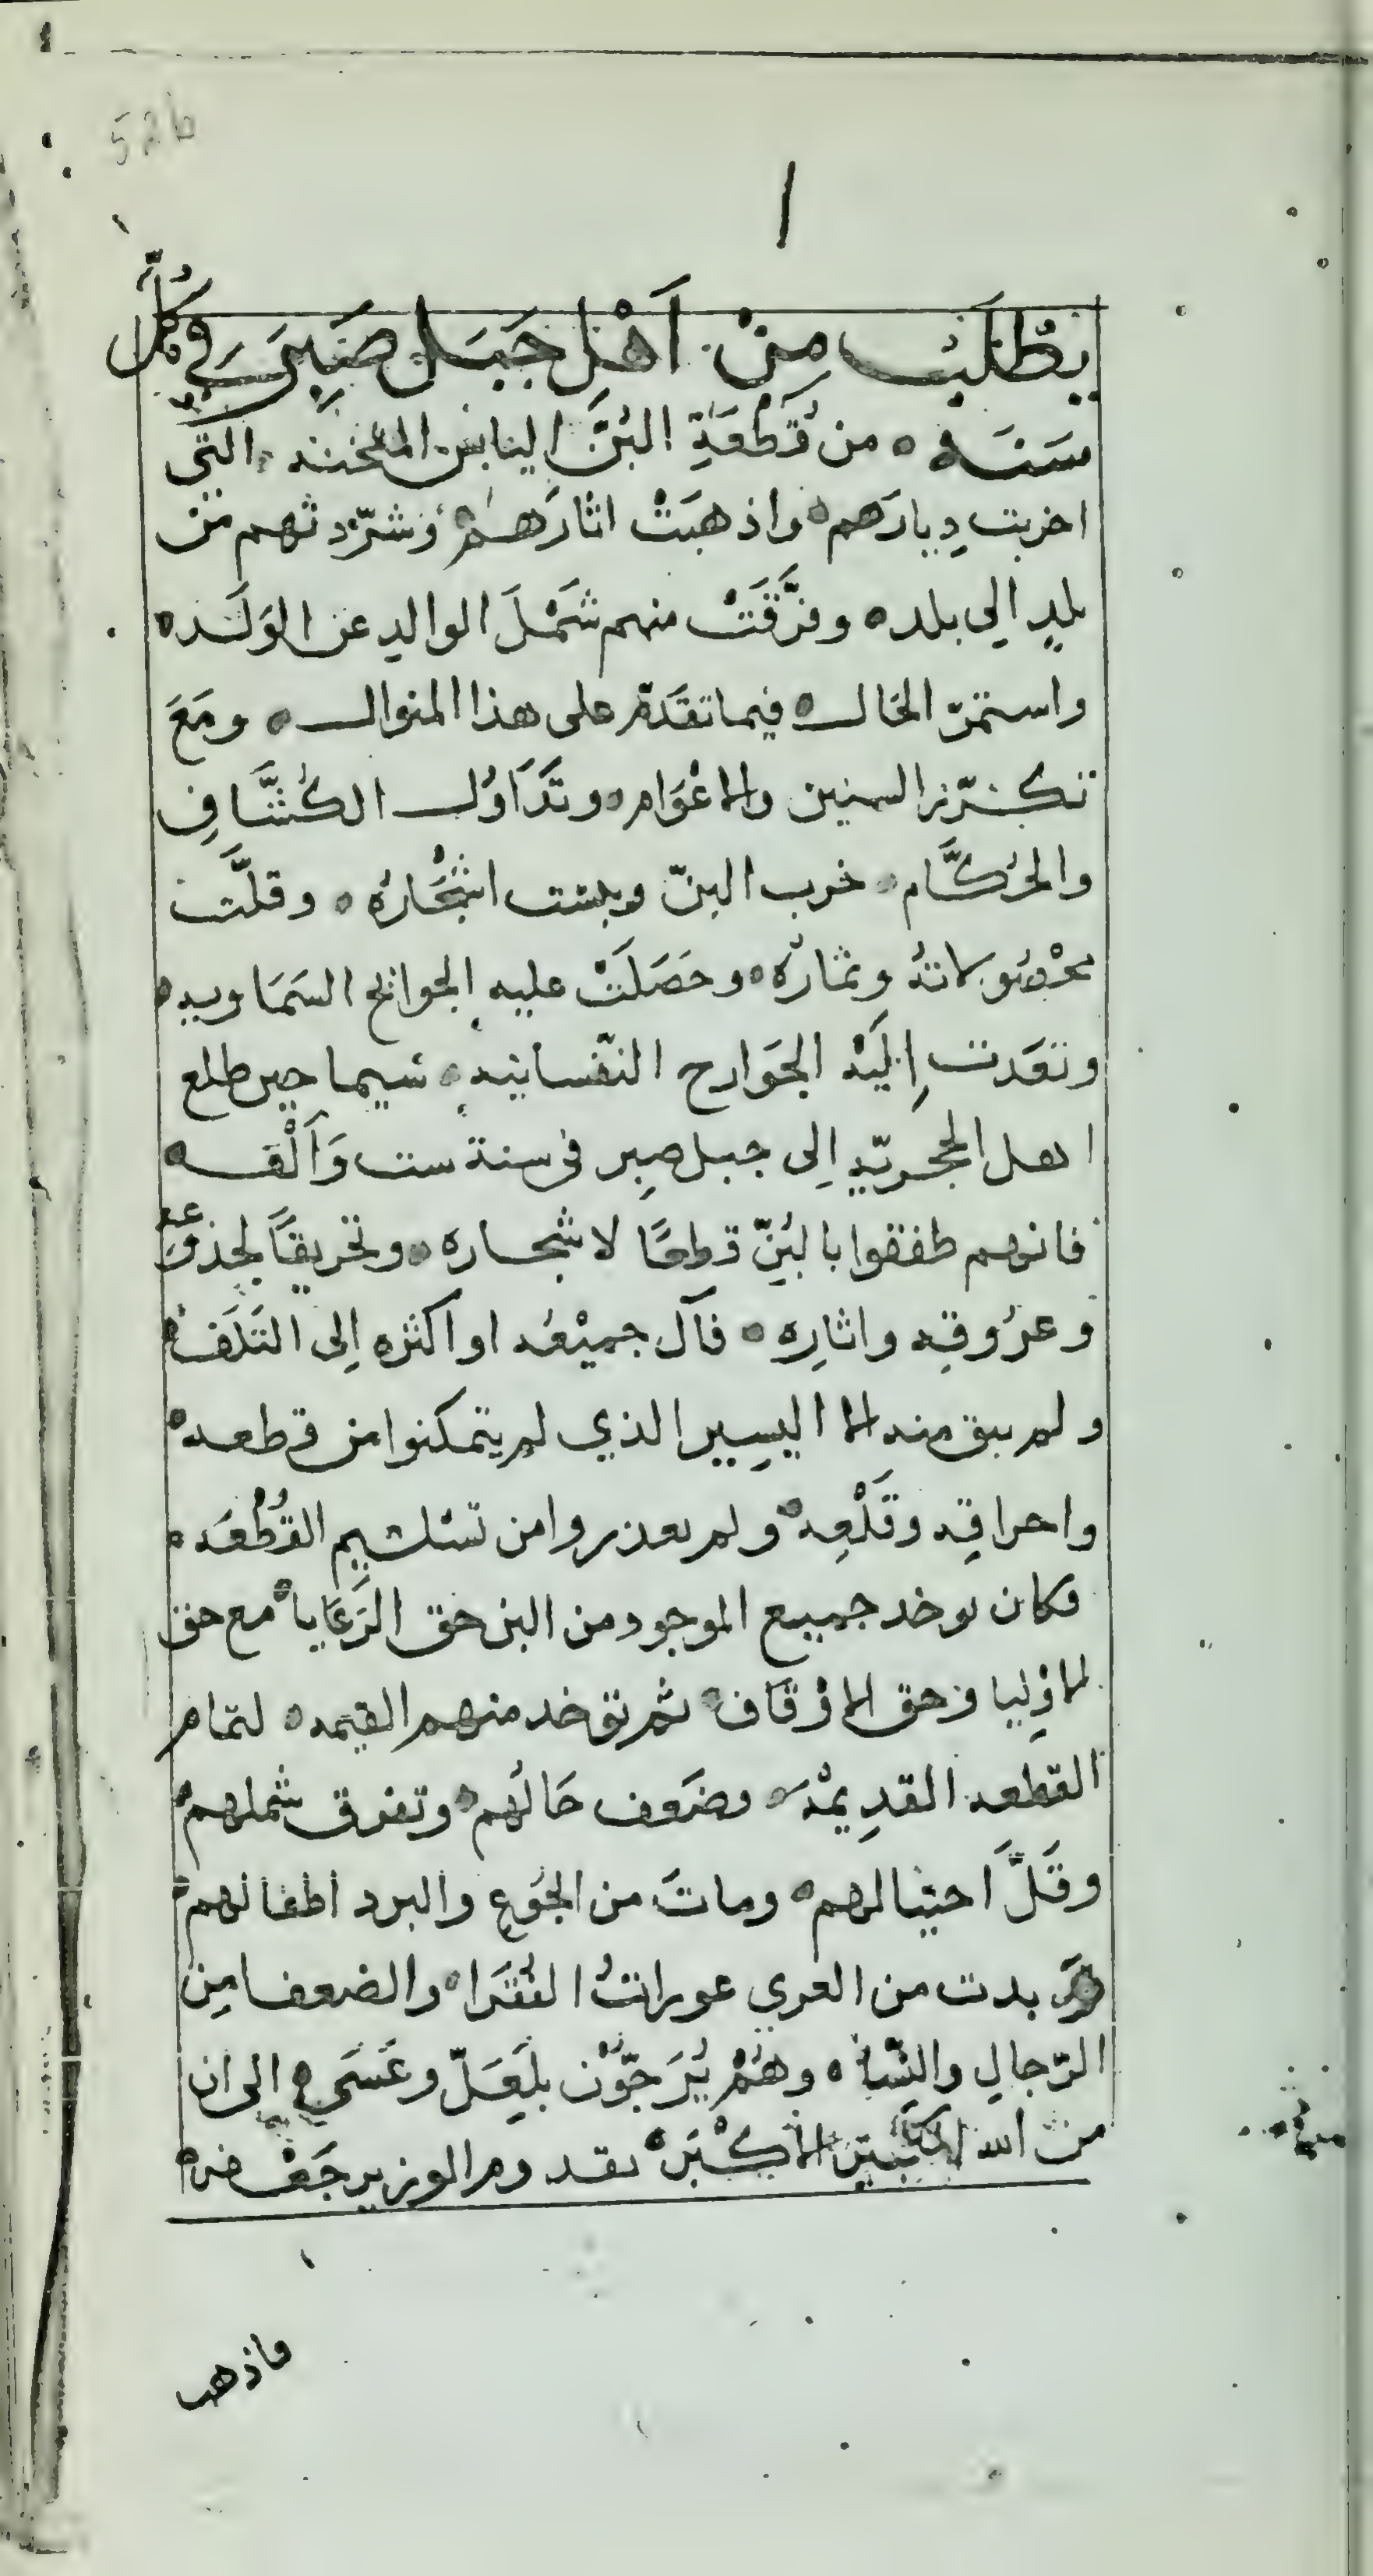 52b
١
يُطْلَبُ مِنْ أَهْلِ جَبَلِ صَبِرَ في كُلِّ
سَنَةٍ ٥ من قُطْعَةِ البُنِّ اليابس التي
اخربت دِيارَهم ٥ واذهبَتْ اثارَهم ٥ وَشرّدتهم من
بلدٍ الي بلده ٥ وفرَّقَتْ منهم شَمْلَ الوالدِ عن الوَلَده
واستمرّ الحال ٥ فيما تقَدّم على هذا المنوال ٥ ومَعَ
تكرّر السنين والاعْوَام ٥ وتَدَاوُل الكُشَّافِ
والحُكَّام ٥ خرب البنّ ويبست اشْجَارُه ٥ وقلَّت
محْصُولاتهُ وثمَارُه ٥ وحَصَلَتْ عليه الجوائح السَمَاويه
وتعَدت إِلَيْه الجَوارح النّفسانيه ٥ سيما حين طلع
اهل الحجريّهِ إِلى جبل صبِر في سنة ست وَأَلْف ٥
فانهم طفقوا بالبُنِّ قطعًا لاشجاره ٥ وتحريقًا لجذوعه
وعرُوقِه واثارِه ٥ فآل جميْعُه او اكثره إِلى التَلَف ٥
ولم يبق منه الا اليسِير الذي لم يتمكنوا من قطعه ٥
واحراقِه وقَلْعِه ٥ ولم يعذروا من تسْليم القُطْعَه ٥
فكان يوخد جميع الموجود من البن حق الرَعَايا ٥ مع حق
الاوْليا وحق الاوْقاف ٥ ثم توخد منهم القيمه ٥ لتمام
القطعه القدِيمْه ٥ وضَعف حَالُهم ٥ وتفرق شملهم ٥
وقَلَّ احتيالهم ٥ وماتَ من الجُوع والبرد اطفالهم ٥
وَ بدت من العري عوراتُ الفُقَرا ٥ والضعفا مِن
الرّجالِ والنّسَا ٥ وهُمْ يُرَجّوْن بلَعَلّ وعَسَى ٥ الى ان
من الله الاكْبَر ٥ بقدوم الوزير جَعْفر ٥
فاذهب